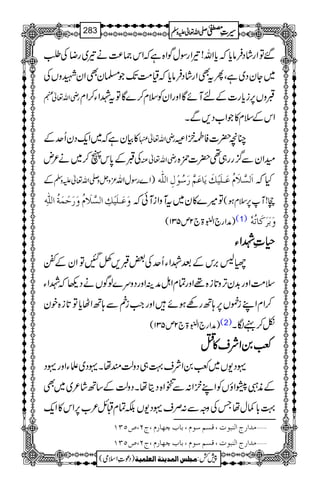 سیرتِ مصطفیٰ صلی اللہ تعالیٰ علیہ وسلم
283
گئے تو ارشاد فرمایا کہ یا اللہ! تیرا رسول گواہ ہے کہ اس جماعت نے تیری رضا کی طلب
میں جان دی ہے، پھر یہ بھی ارشاد فرمایا کہ قیامت تک جو مسلمان بھی ان شہیدوں کی
قبروں پر زیارت کے لئے آئے گا اور ان کو سلام کرے گا تو یہ شہداء کرام رضی اللہ تعالیٰ عنہم
اس کے سلام کا جواب دیں گے۔
چنانچہ حضرت فاطمہ خزاعیہ رضی اللہ تعالیٰ عنہا کا بیان ہے کہ میں ایک دن اُحد کے
میدان سے گزر رہی تھی حضرت حمزہ رضی اللہ تعالیٰ عنہ کی قبر کے پاس پہنچ کر میں نے عرض
کیا کہ اَلسَّلَامُ عَلَیْکَ یَا عَمَّ رَسُوْلِ اللّٰہ (اے رسول اللہ عزوجل و صلی اللہ تعالیٰ علیہ وسلم کے
چچا! آپ پر سلام ہو) تو میرے کان میں یہ آواز آئی کہ وَعَلَیْکِ السَّلَامُ وَرَحْمَۃُ اللّٰہِ
وَبَرَکَاتُہٗ (1) (مدارج النبوۃ ج۲ ص۱۳۵)
حیاتِ شہداء
چھیالیس برس کے بعد شہداء اُحد کی بعض قبریں کھل گئیں تو ان کے کفن
سلامت اور بدن تروتازہ تھے اور تمام اہل مدینہ اور دوسرے لوگوں نے دیکھا کہ شہداء
کرام اپنے زخموں پر ہاتھ رکھے ہوئے ہیں اور جب زخم سے ہاتھ اٹھایا تو تازہ خون
نکل کر بہنے لگا۔ (2) (مدارج النبوۃ ج۲ ص۱۳۵)
کعب بن اشرف کا قتل
یہودیوں میں کعب بن اشرف بہت ہی دولت مند تھا۔ یہودی علماء اور یہود
کے مذہبی پیشواؤں کو اپنے خزانہ سے تنخواہ دیتا تھا۔ دولت کے ساتھ شاعری میں بھی
بہت باکمال تھا جس کی وجہ سے نہ صرف یہودیوں بلکہ تمام قبائل عرب پر اس کا ایک
1.....مدارج النبوت ، قسم سوم ، باب چهارم ،ج۲،ص۱۳۵
2.....مدارج النبوت ، قسم سوم ، باب چهارم ،ج۲،ص۱۳۵
پیش کش: مجلس المدینة العلمیة (دعوتِ اسلامی)